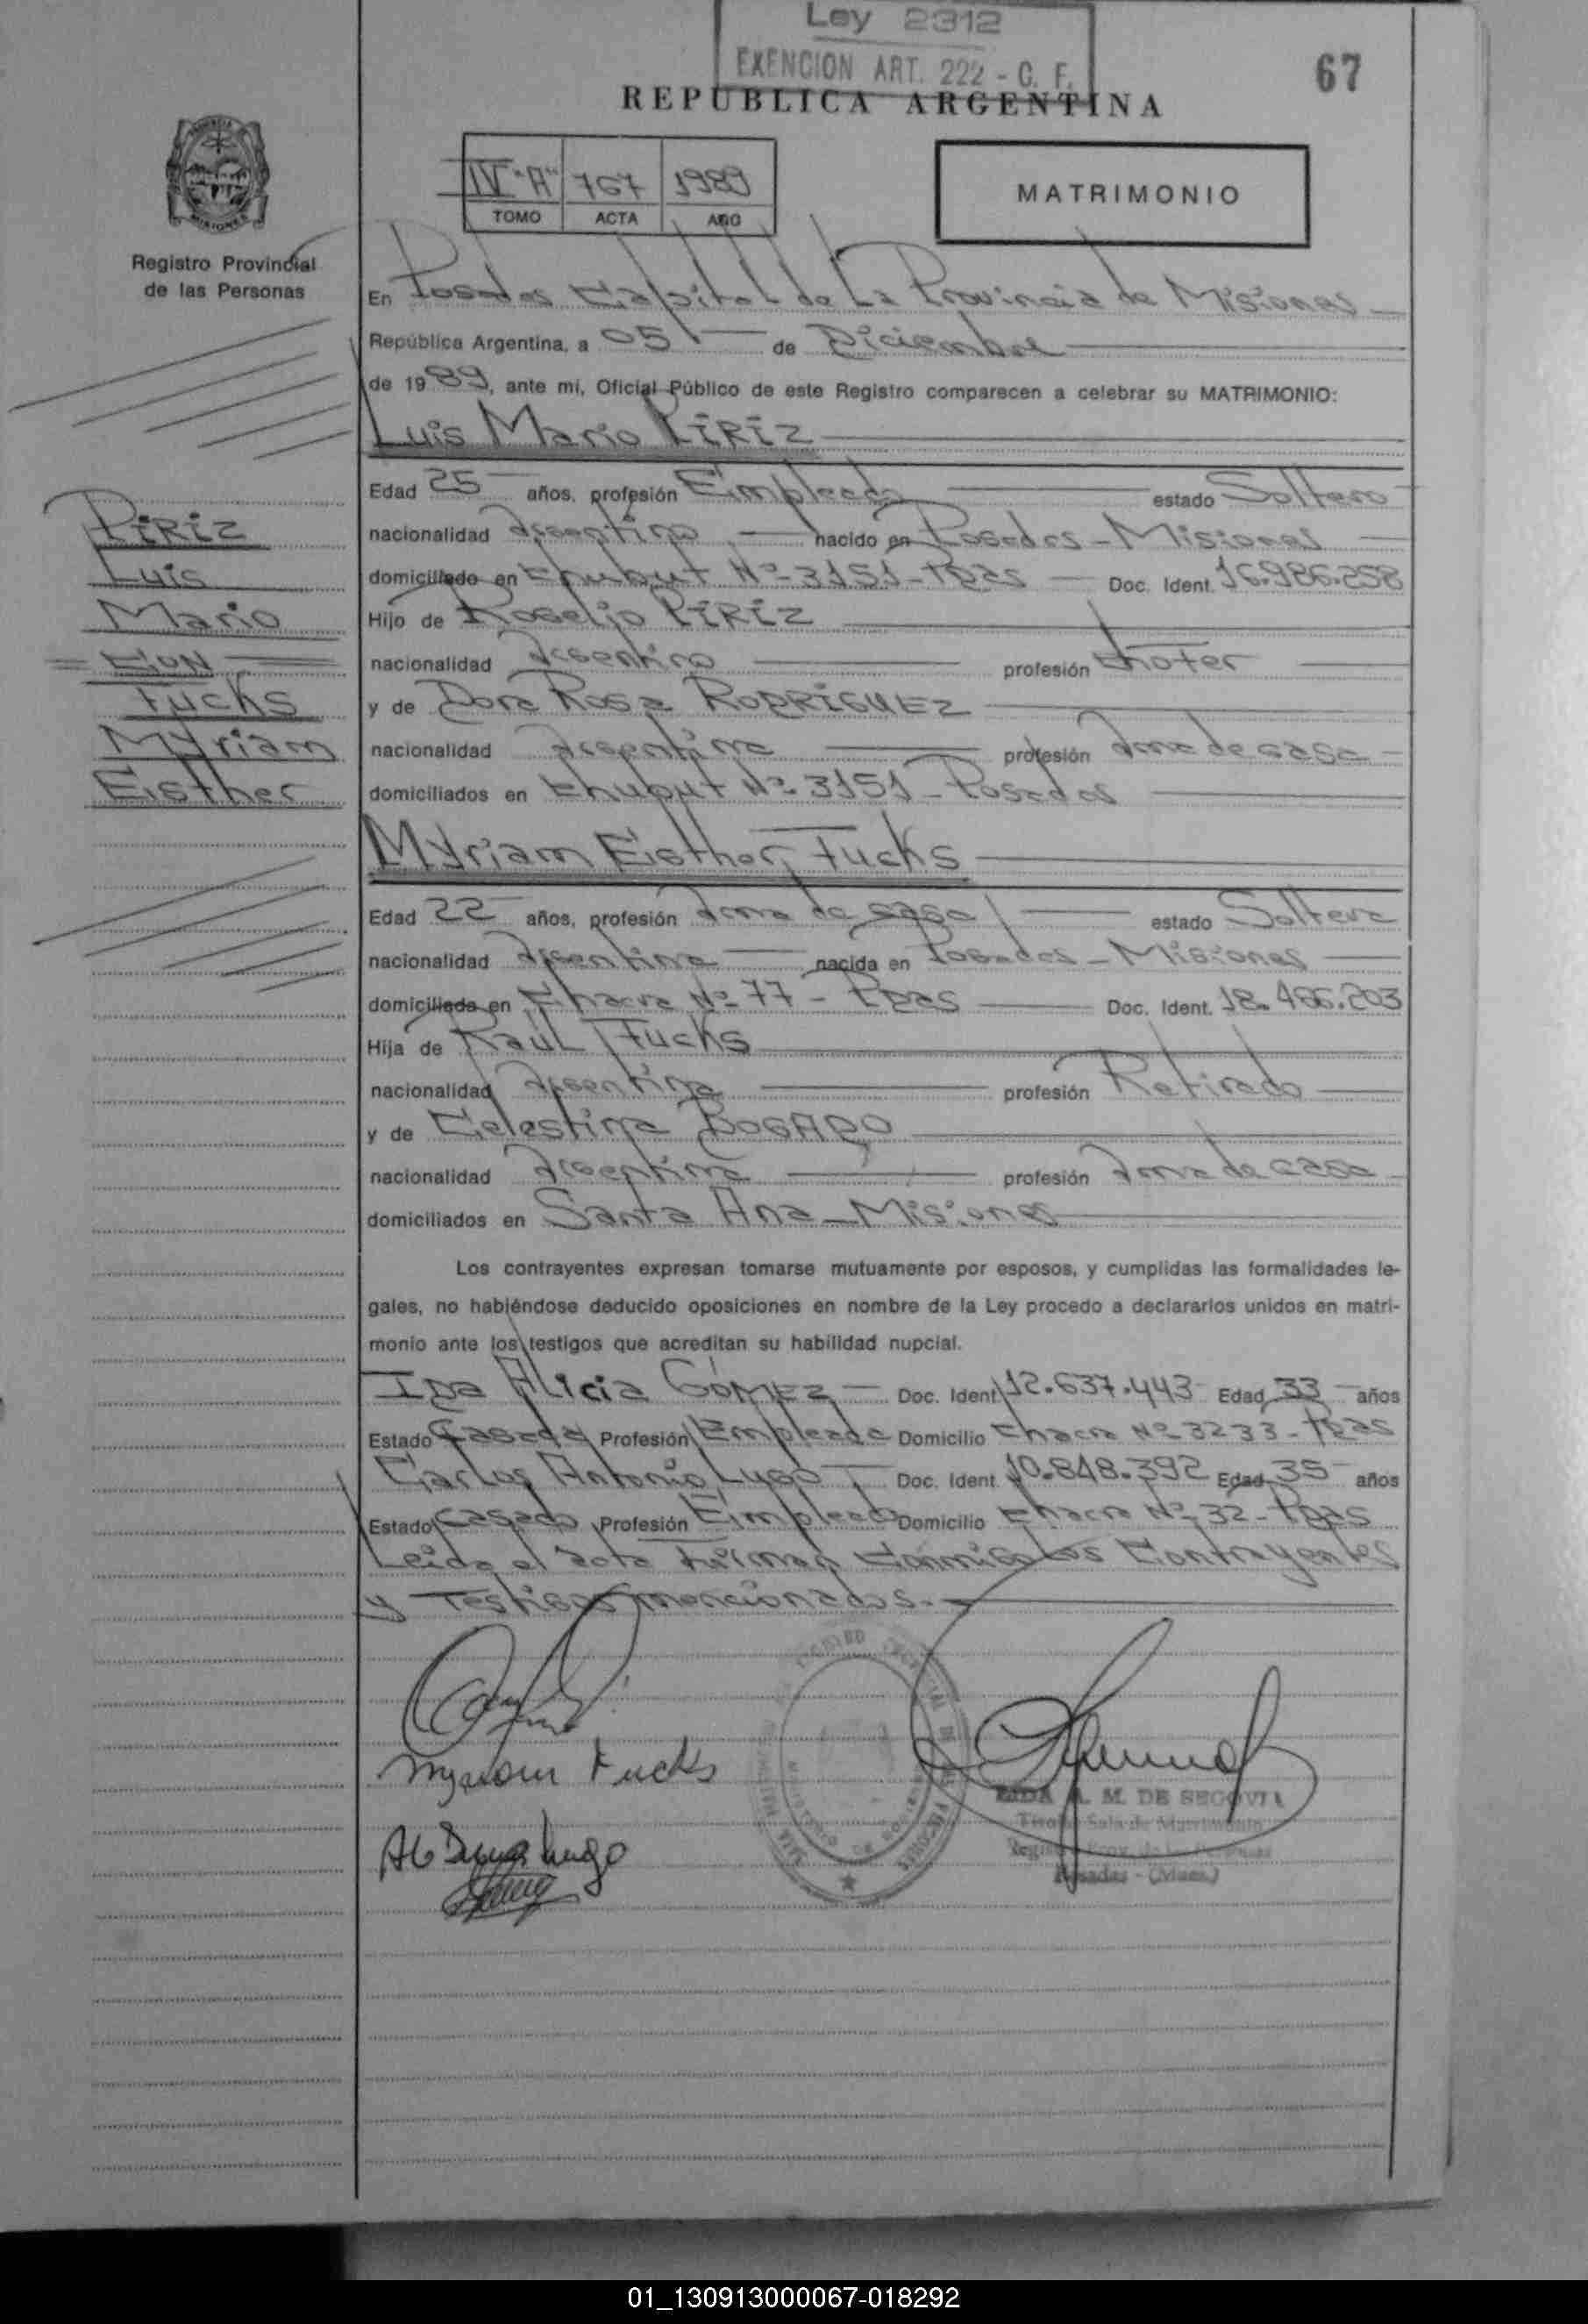 Ley 2312
EXENCION ART. 222 - C. F.
67
REPUBLICA ARGENTINA
IV "A" 767 1989
TOMO ACTA AÑO
MATRIMONIO
MISIONES
Registro Provincial
de las Personas
En Posadas Capital de La Provincia de Misiones
República Argentina, a 05 de Diciembre
de 1989, ante mí, Oficial Público de este Registro comparecen a celebrar su MATRIMONIO:
Luis Mario PíRiz
Edad 25 años, profesión Empleado estado Soltero
nacionalidad Argentino nacido en Posadas - Misiones
domiciliado en Chubut Nº 3151 - Pdas Doc. Ident. 16.986.258
Hijo de Rogelio PíRiz
nacionalidad Argentino profesión Chofer
y de Dora Rosa RODRíGUEz
nacionalidad Argentina profesión Ama de casa
domiciliados en Chubut Nº 3151 - Posadas
PíRiz
Luis
Mario
= CON =
Fucks
Myriam
Esther
Myriam Esther Fucks
Edad 22 años, profesión Ama de casa estado Soltera
nacionalidad Argentina nacida en Posadas - Misiones
domiciliada en Chacra Nº 77 - Pdas Doc. Ident. 18.466.203
Hija de Raúl Fucks
nacionalidad Argentina profesión Retirado
y de Celestina BOGADO
nacionalidad Argentina profesión Ama de casa
domiciliados en Santa Ana - Misiones
Los contrayentes expresan tomarse mutuamente por esposos, y cumplidas las formalidades le-
gales, no habiéndose deducido oposiciones en nombre de la Ley procedo a declararlos unidos en matri-
monio ante los testigos que acreditan su habilidad nupcial.
Ida Alicia GóMEz Doc. Ident. 12.637.443 Edad 33 años
Estado Casada Profesión Empleada Domicilio Chacra Nº 3233 - Pdas
Carlos Antonio Lugo Doc. Ident. 10.848.392 Edad 35 años
Estado Casado Profesión Empleado Domicilio Chacra Nº 32 - Pdas
Leida el acta firman conmigo los Contrayentes
y Testigos mencionados.-
Myriam Fucks
Lugo
A. M. DE SEGOVIA
Sala de Matrimonio
Posadas - (Mnes.)
01_130913000067-018292